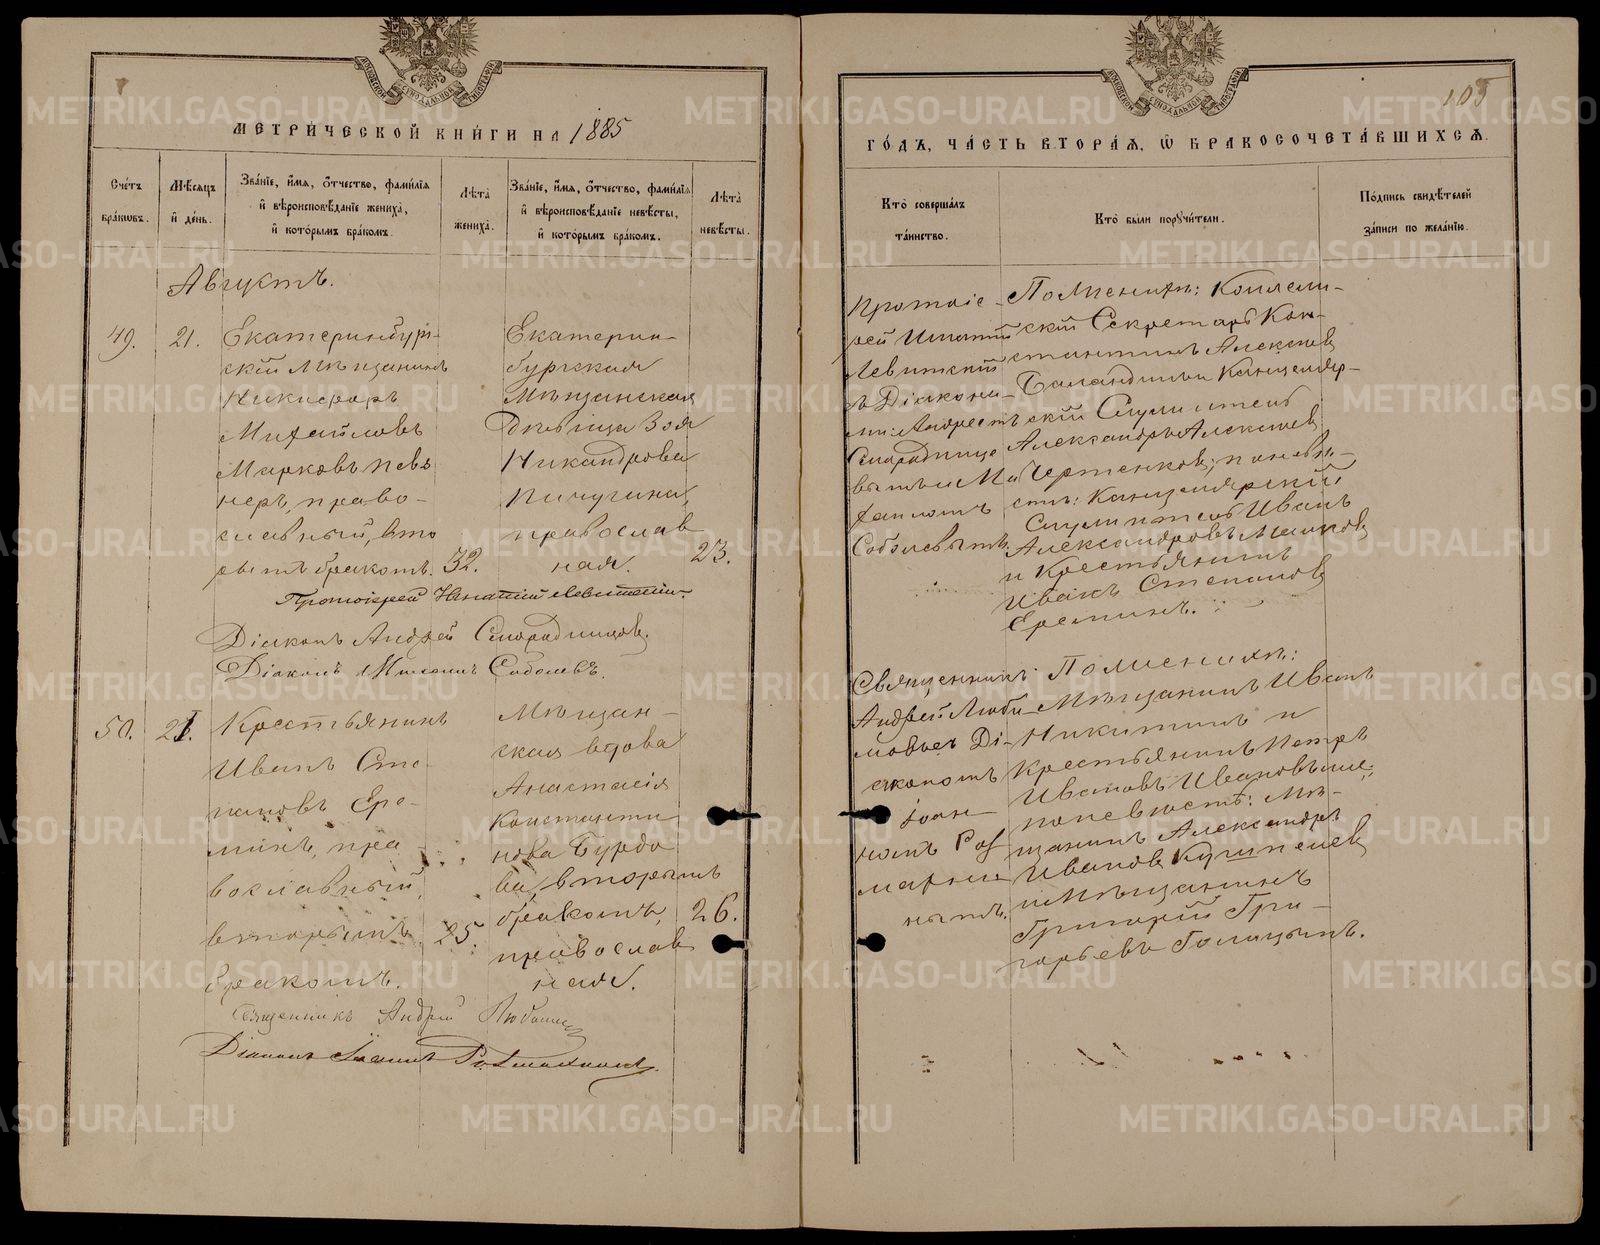 МЕТРИ́ЧЕСКОЙ КНИ́ГИ НА 1885
Сче́тъ бра́ковъ.
Мѣ́сяцъ и҆ де́нь.
Зва́нїе, и҆́мя, ѻ҆́тчество, фами́лїя и҆ вѣроисповѣ́данїе жениха̀, и҆ кото́рымъ бра́комъ.
Лѣ́та жениха̀.
Зва́нїе, и҆́мя, ѻ҆́тчество, фами́лїя и҆ вѣроисповѣ́данїе невѣ́сты, и҆ кото́рымъ бра́комъ.
Лѣ́та невѣ́сты.
Августъ.
49.
21.
Екатеринбург-
скій Мѣщанинъ
Никифоръ
Михайловъ
Марковъ
неръ, право-
славный, вто
рымъ бракомъ.
32.
Екатерин-
бургская
Мѣщанская
Дѣвица Зоя
Никандрова
Пичугина,
православ
ная.
23.
Протоіерей Игнатій Левитскій.
Діаконъ Андрей Смородинцовъ.
Діаконъ Соболевъ.
50.
21.
Крестьянинъ
Иванъ Сте-
пановъ Ере-
минъ, пра-
вославный,
вторымъ
бракомъ.
25.
Мѣщан-
ская вдова
Анастасія
Константи
нова Бурдо
ва, вторымъ
бракомъ,
православ
ная.
26.
Священникъ Андрей Любимовъ
Діаконъ Іоаннъ
105
ГО́ДЪ, ЧА́СТЬ ВТОРА́Я, Ѽ БРАКОСОЧЕТА́ВШИХСЯ.
Кто̀ соверша́лъ та́инство.
Кто̀ бы́ли порꙋчи́тели.
По́дпись свидѣ́телей за́писи по жела́нїю.
Протоіе-
рей Игнатій
Левитскій
съ Діакона-
ми: Андреемъ
Смородинцо
вымъ и Ми
Соболевымъ.
По Женихѣ: Коллежи-
скій Секретарь Кон-
стантинъ Алексѣевъ
Баландинъ и Канцеляр-
скій Служитель
Александръ Алексѣевъ
Чертенковъ; по невѣ-
стѣ: Канцелярскій
Служитель Иванъ
Александровъ
и Крестьянинъ
Иванъ Степановъ
Ереминъ.
Священникъ
Андрей Люби-
мовъ съ Ді-
акономъ
Іоан-
номъ
нымъ.
По женихѣ:
Мѣщанинъ Иванъ
Никитинъ и
Крестьянинъ Петръ
Ивановъ
по невѣстѣ: Мѣ-
щанинъ Александръ
Ивановъ
и Мѣщанинъ
Григорій Гри-
горьевъ Голицынъ.
METRIKI.GASO-URAL.RU